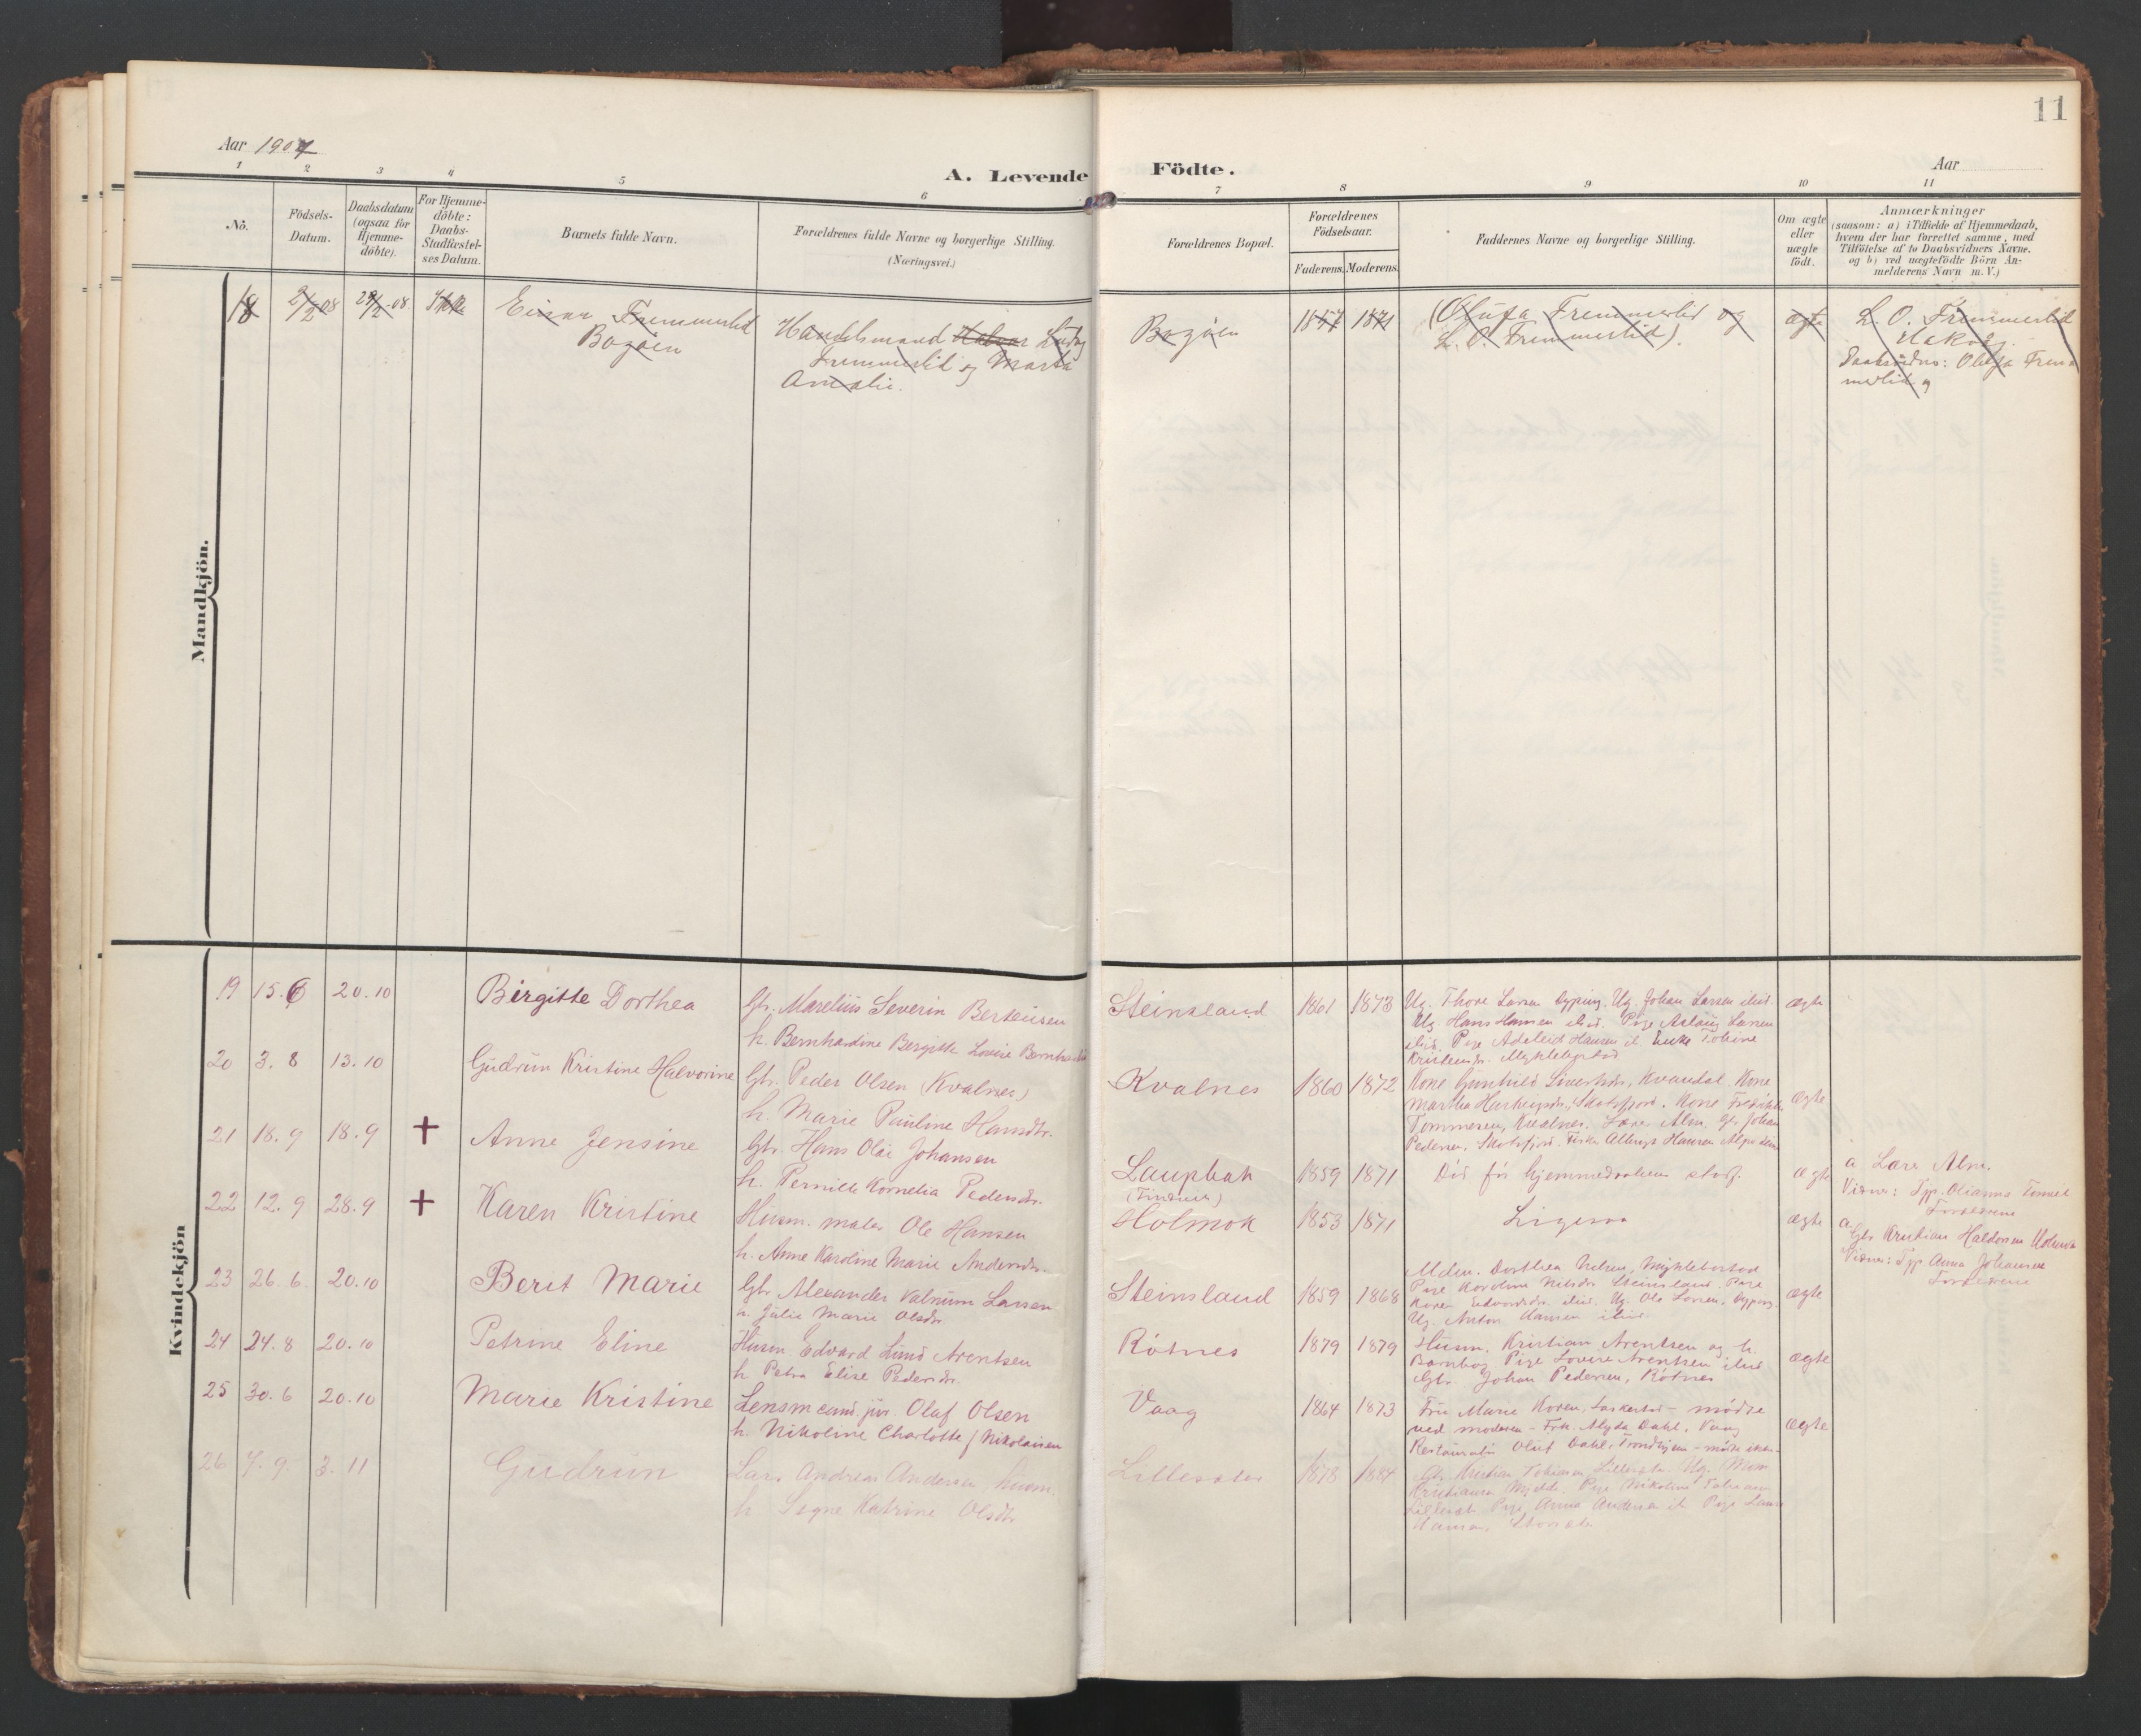 11
Aar 1907
Aar
A. Levende Födte.
1 2 3 4 5 6 7 8 9 10 11
No.
Födsels-
Datum.
Daabsdatum
(ogsaa for
Hjemme-
döbte).
For Hjemme-
döbte:
Daabs-
Stadfæstel-
ses Datum.
Barnets fulde Navn.
Forældrenes fulde Navne og borgerlige Stilling.
(Næringsvei.)
Forældrenes Bopæl.
Forældrenes
Födselsaar.
Faderens. Moderens.
Faddernes Navne og borgerlige Stilling.
Om ægte
eller
uægte
födt.
Anmærkninger
(saasom: a) i Tilfælde af Hjemmedaab,
hvem der har forrettet samme, med
Tilföielse af to Daabsvidners Navne.
og b) ved uægtefödte Börn An-
melderens Navn m. V.)
Mandkjön.
18 2/2 08 29/2 08 Einar Fremmerlid
Bogøen
Handelsmand Ludvig
Fremmerlid og Marta
Amalie.
Bogøen
1857 1871
(Olufa Fremmerlid og
L. O. Fremmerlid).
ægte
L. O. Fremmerlid
Daabsvidne: Olufa Frem-
merlid og
Kvindekjön
19 15.6 20.10 Birgitte Dorthea
Gbr. Marelius Severin Berteusen
h. Bernhardine Bergitte Lovise
Steinsland 1861 1873
Ug. Thore Larsen Dyping. Ug. Johan Larsen ibid
Ug. Hans Hansen ibid. Pige Aslaug Larsen
ibid. Pige Adeleid Hansen ib. Enke Toline
Kristensdr. Myklebostad
ægte
20 3. 8 13.10 Gudrun Kristine Halvorine
Gbr. Peder Olsen (Kvalnes)
h. Marie Pauline Hansdtr.
Kvalnes 1860 1872
Kone Gunhild Sivertsdr, Kvandal. Kone
Martha, Skotsfjord. Kone Fredrikke
Tommesen, Kvalnes. Lærer Alm. Gbr Johan
Pedersen, Skotsfjord. Hansen
ægte
21 18. 9 18.9 + Anne Jensine
Gbr. Hans Olai Johansen
h. Pernille Kornelia Pedersdtr.
Laupbak
1859 1871
Død før hjemmedaaben stadf.
ægte
a Lærer Alm.
Vidner: Tjp. Olianna
Forældrene
22 12. 9 28.9 + Karen Kristine
Husm. maler Ole Hansen
h. Anne Karoline Marie Andersdr.
Holmok 1853 1871
Ligesaa
ægte
a Gbr Kristian Haldorsen Holmok
Vidner: Tjp Anna Johansen
Forældrene
23 26. 6. 20.10 Berit Marie
Gbr Alexander Valnum Larsen
h. Julie Marie Olsdr
Steinsland 1859 1868
Dorthea Nilsen, Myklebostad
Pige Karoline Nilsdr Steinsland. Pige
Karen Edvardsdr. ibid. Ug. Ole Larsen, Dyping.
Ug. Anton Hansen ibid
ægte
24 24. 8 20.10 Petrine Eline
Husm. Edvard Lund Arentsen
h Petra Elise Pedersdr.
Røtnes 1879 1879
Husm. Kristian Arentsen og h.
Barnbog Pige Lovise Arentsen ibid
Gbr. Johan Pedersen, Røtnes
ægte
25 30. 6 20.10 Marie Kristine
Lensmand. jur Olaf Olsen
h. Nikoline Charlotte f Nikolaisen
Vaag 1864 1873
Fru Marie Koren, – mødte
ved moderen – Frk. Alyda Dahl, Vaag
Restauratør Oluf Dahl, Trondhjem – mødte ikke –
ægte
26 7. 9. 3. 11 Gudrun
Lars Andreas Andersen, husm.
h Signe Katrine Olsdtr
Lillesæter 1878 1884
Kristian Tobiassen, Lillesæter. Ug.
Kristiansen Mjelde. Pige Nikoline Tobiassen
Lillesæt. Pige Anna Andersen ib Pige
Hansen,